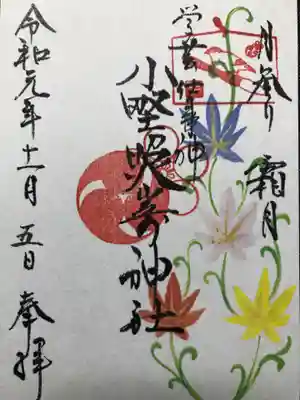 月参り 霜月
学芸仕事の神
小野照崎神社
令和元年十一月五日 奉拝